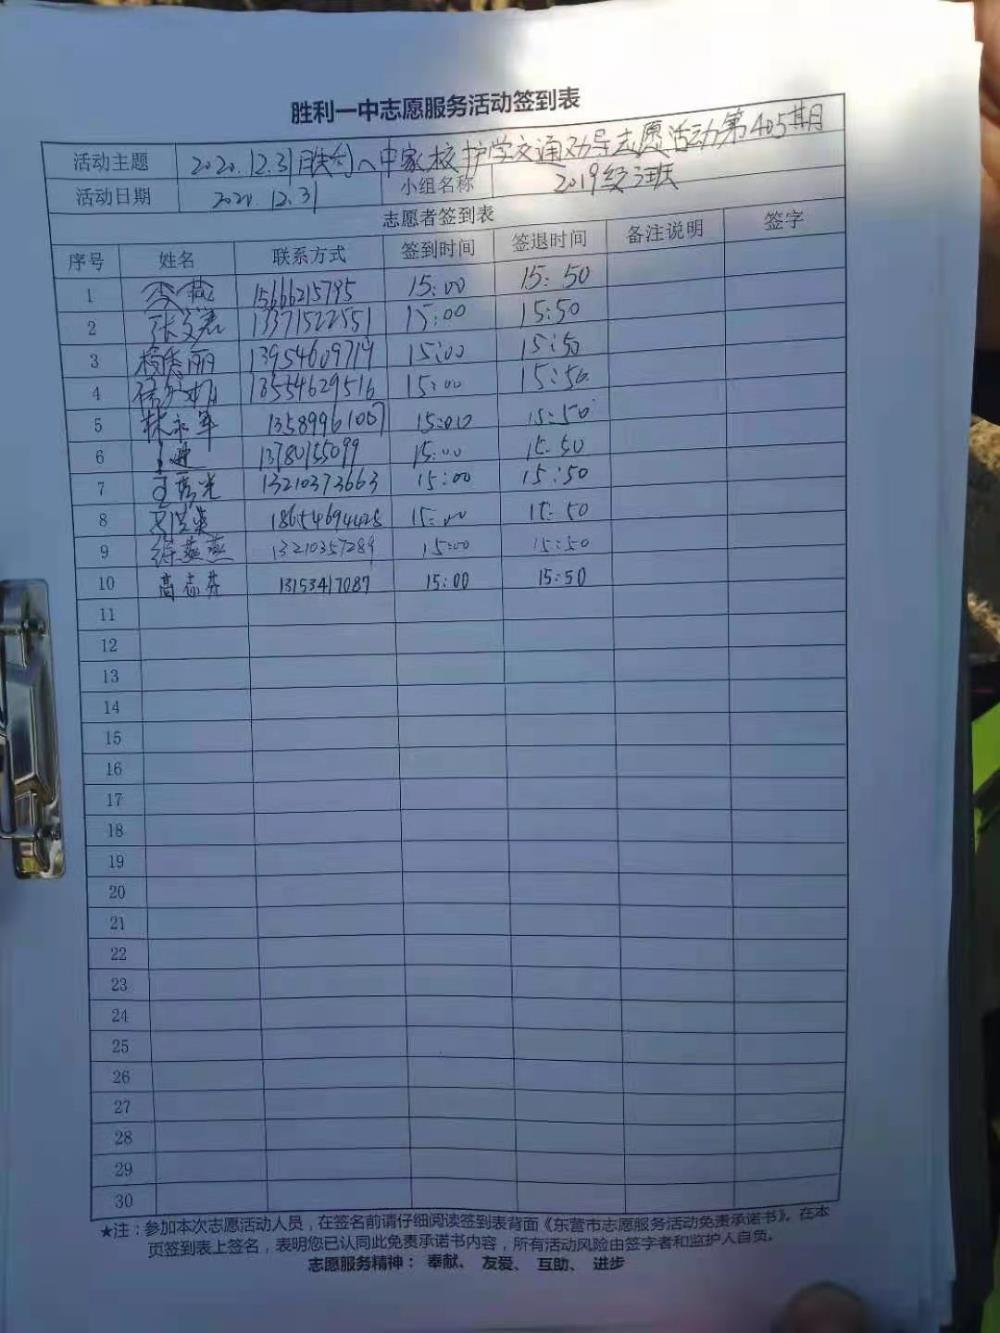 胜利一中志愿服务活动签到表
活动主题 2020.12.31胜利一中家校护学交通劝导志愿活动第405期
活动日期 2020.12.31 小组名称 2019级 班
志愿者签到表
序号 姓名 联系方式 签到时间 签退时间 备注说明 签字
1 李燕 15666215795 15:00 15:50
2 13371522551 15:00 15:50
3 杨秀丽 13954609714 15:00 15:50
4 13554629516 15:00 15:50
5 林永军 13589961007 15:00 15:50
6 13780155099 15:00 15:50
7 13210373663 15:00 15:50
8 15:00 15:50
9 徐燕燕 13210357289 15:00 15:50
10 高志芬 13153417087 15:00 15:50
11
12
13
14
15
16
17
18
19
20
21
22
23
24
25
26
27
28
29
30
★注：参加本次志愿活动人员，在签名前请仔细阅读签到表背面《东营市志愿服务活动免责承诺书》。在本
页签到表上签名，表明您已认同此免责承诺书内容，所有活动风险由签字者和监护人自负。
志愿服务精神： 奉献、 友爱、 互助、 进步